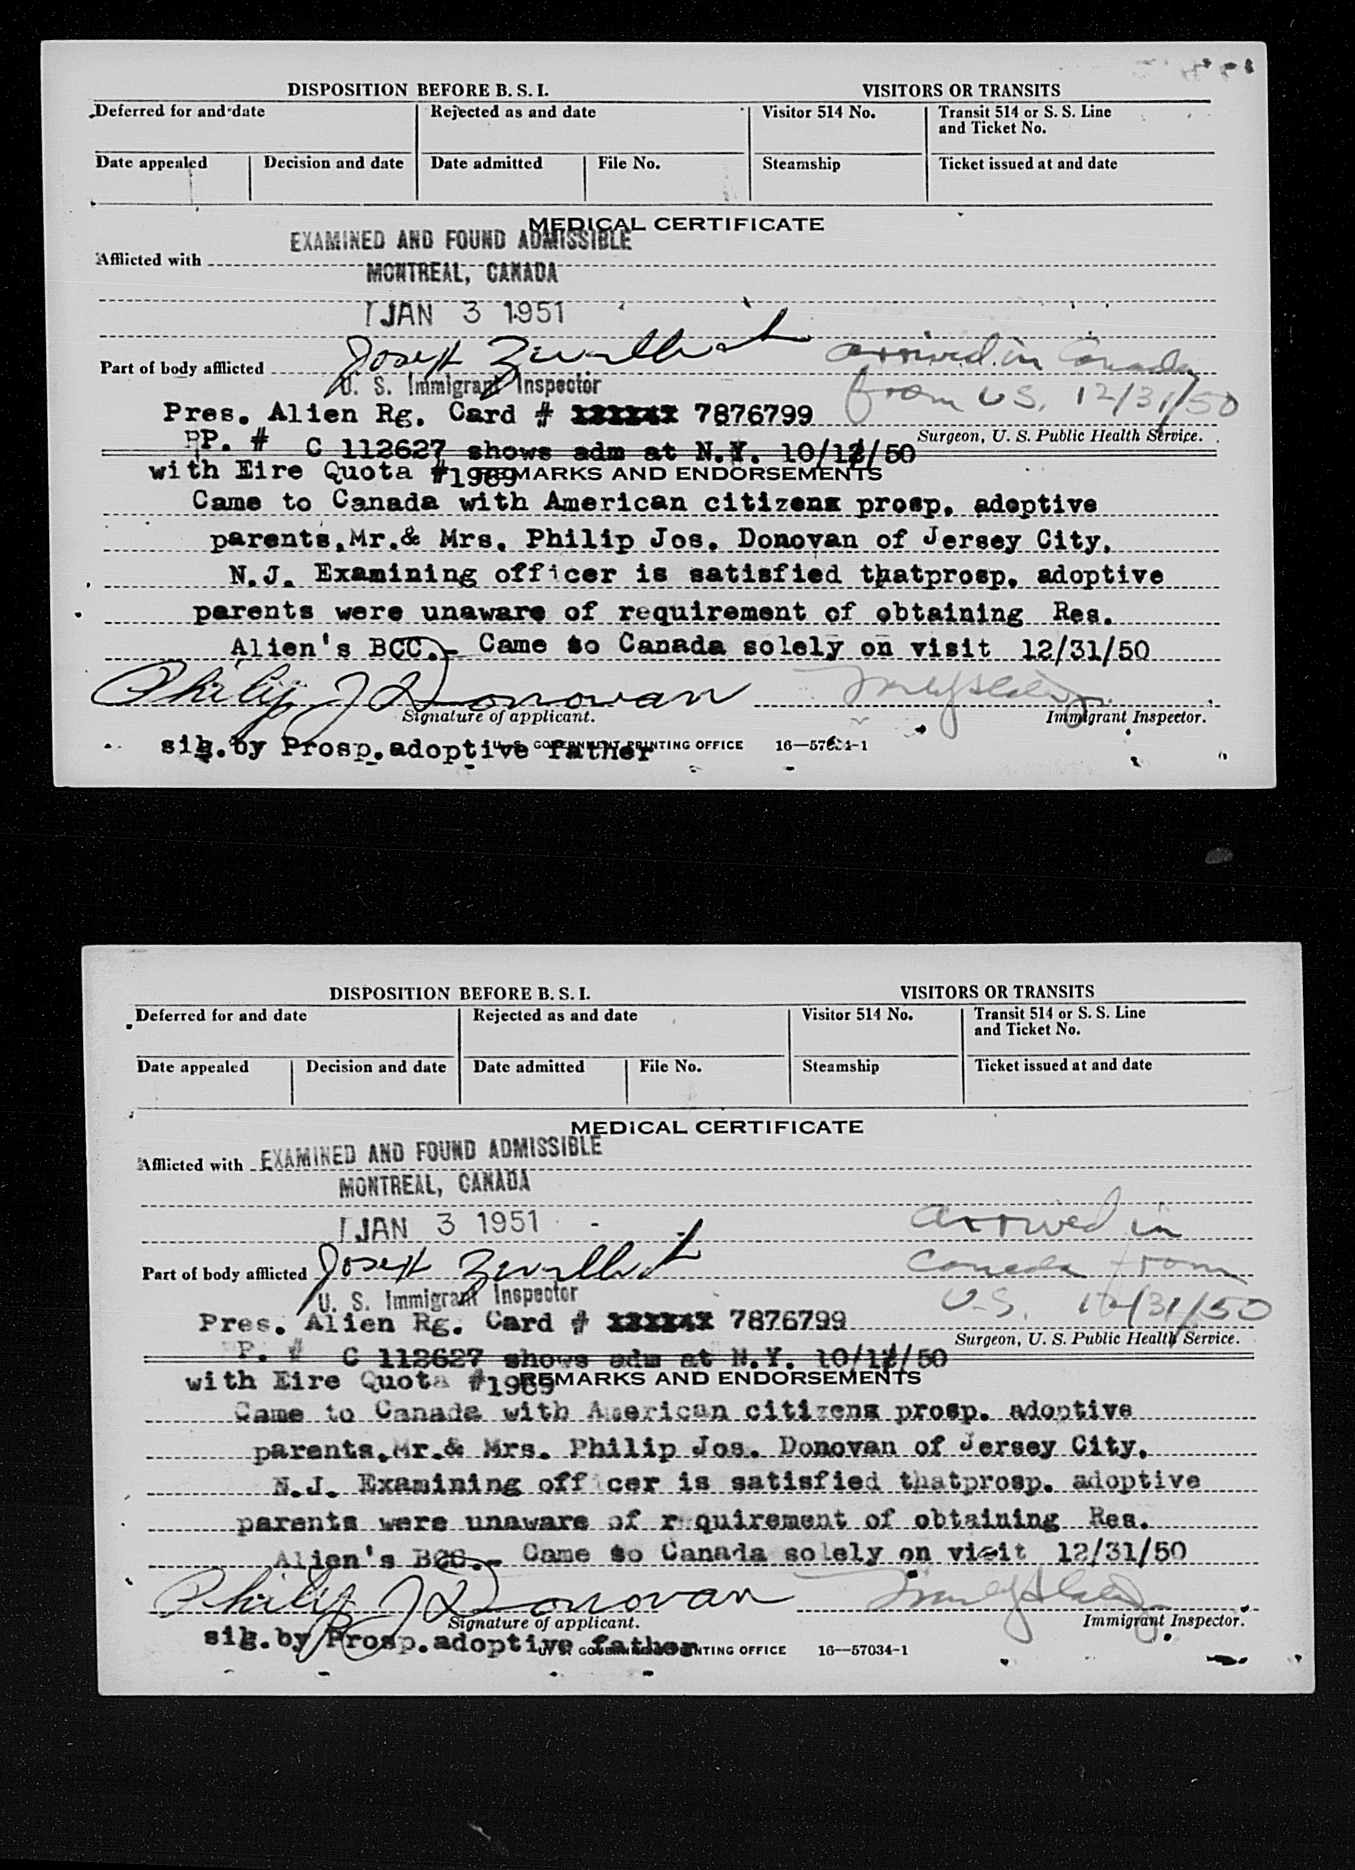 DISPOSITION BEFORE B. S. I. VISITORS OR TRANSITS
Deferred for and date Rejected as and date Visitor 514 No. Transit 514 or S. S. Line
and Ticket No.
Date appealed Decision and date Date admitted File No. Steamship Ticket issued at and date
MEDICAL CERTIFICATE
EXAMINED AND FOUND ADMISSIBLE
Afflicted with
MONTREAL, CANADA
JAN 3 1951
Joseph
arrived in Canada
Part of body afflicted
U. S. Immigrant Inspector
from US, 12/31/50
Pres. Alien Rg. Card # 7876799
Surgeon, U. S. Public Health Service.
PP. # C 112627 shows adm at N.Y. 10/12/50
with Eire Quota #1989 REMARKS AND ENDORSEMENTS
Came to Canada with American citizens prosp. adoptive
parents,Mr.& Mrs. Philip Jos. Donovan of Jersey City,
N.J. Examining officer is satisfied thatprosp. adoptive
parents were unaware of requirement of obtaining Res.
Alien's BCC.- Came to Canada solely on visit 12/31/50
Philip J Donovan
Signature of applicant. Immigrant Inspector.
sig.by Prosp.adoptive father
U. S. GOVERNMENT PRINTING OFFICE 16—57034-1
DISPOSITION BEFORE B. S. I. VISITORS OR TRANSITS
Deferred for and date Rejected as and date Visitor 514 No. Transit 514 or S. S. Line
and Ticket No.
Date appealed Decision and date Date admitted File No. Steamship Ticket issued at and date
MEDICAL CERTIFICATE
Afflicted with EXAMINED AND FOUND ADMISSIBLE
MONTREAL, CANADA
JAN 3 1951
arrived in
Joseph
Part of body afflicted
Canada from
U. S. Immigrant Inspector
U.S. 12/31/50
Pres. Alien Rg. Card # 7876799
Surgeon, U. S. Public Health Service.
P. # C 112627 shows adm at N.Y. 10/12/50
with Eire Quota #1989 REMARKS AND ENDORSEMENTS
Came to Canada with American citizens prosp. adoptive
parents,Mr.& Mrs. Philip Jos. Donovan of Jersey City,
N.J. Examining officer is satisfied thatprosp. adoptive
parents were unaware of requirement of obtaining Res.
Alien's BCC.- Came to Canada solely on visit 12/31/50
Philip J Donovan
Signature of applicant. Immigrant Inspector.
sig.by Prosp.adoptive father
U. S. GOVERNMENT PRINTING OFFICE 16—57034-1